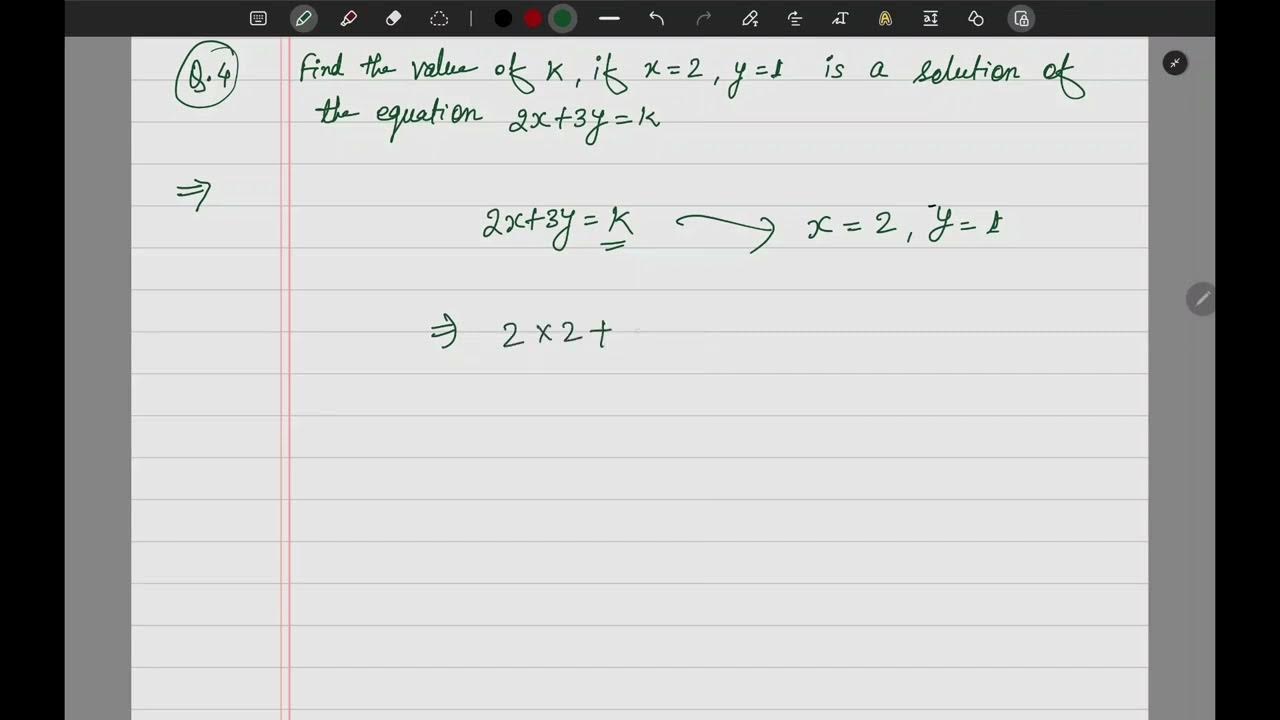 Q.4 Find the value of k, if x=2, y=1 is a solution of
the equation 2x+3y=k
⇒
2x+3y=k → x=2, y=1
⇒ 2×2+